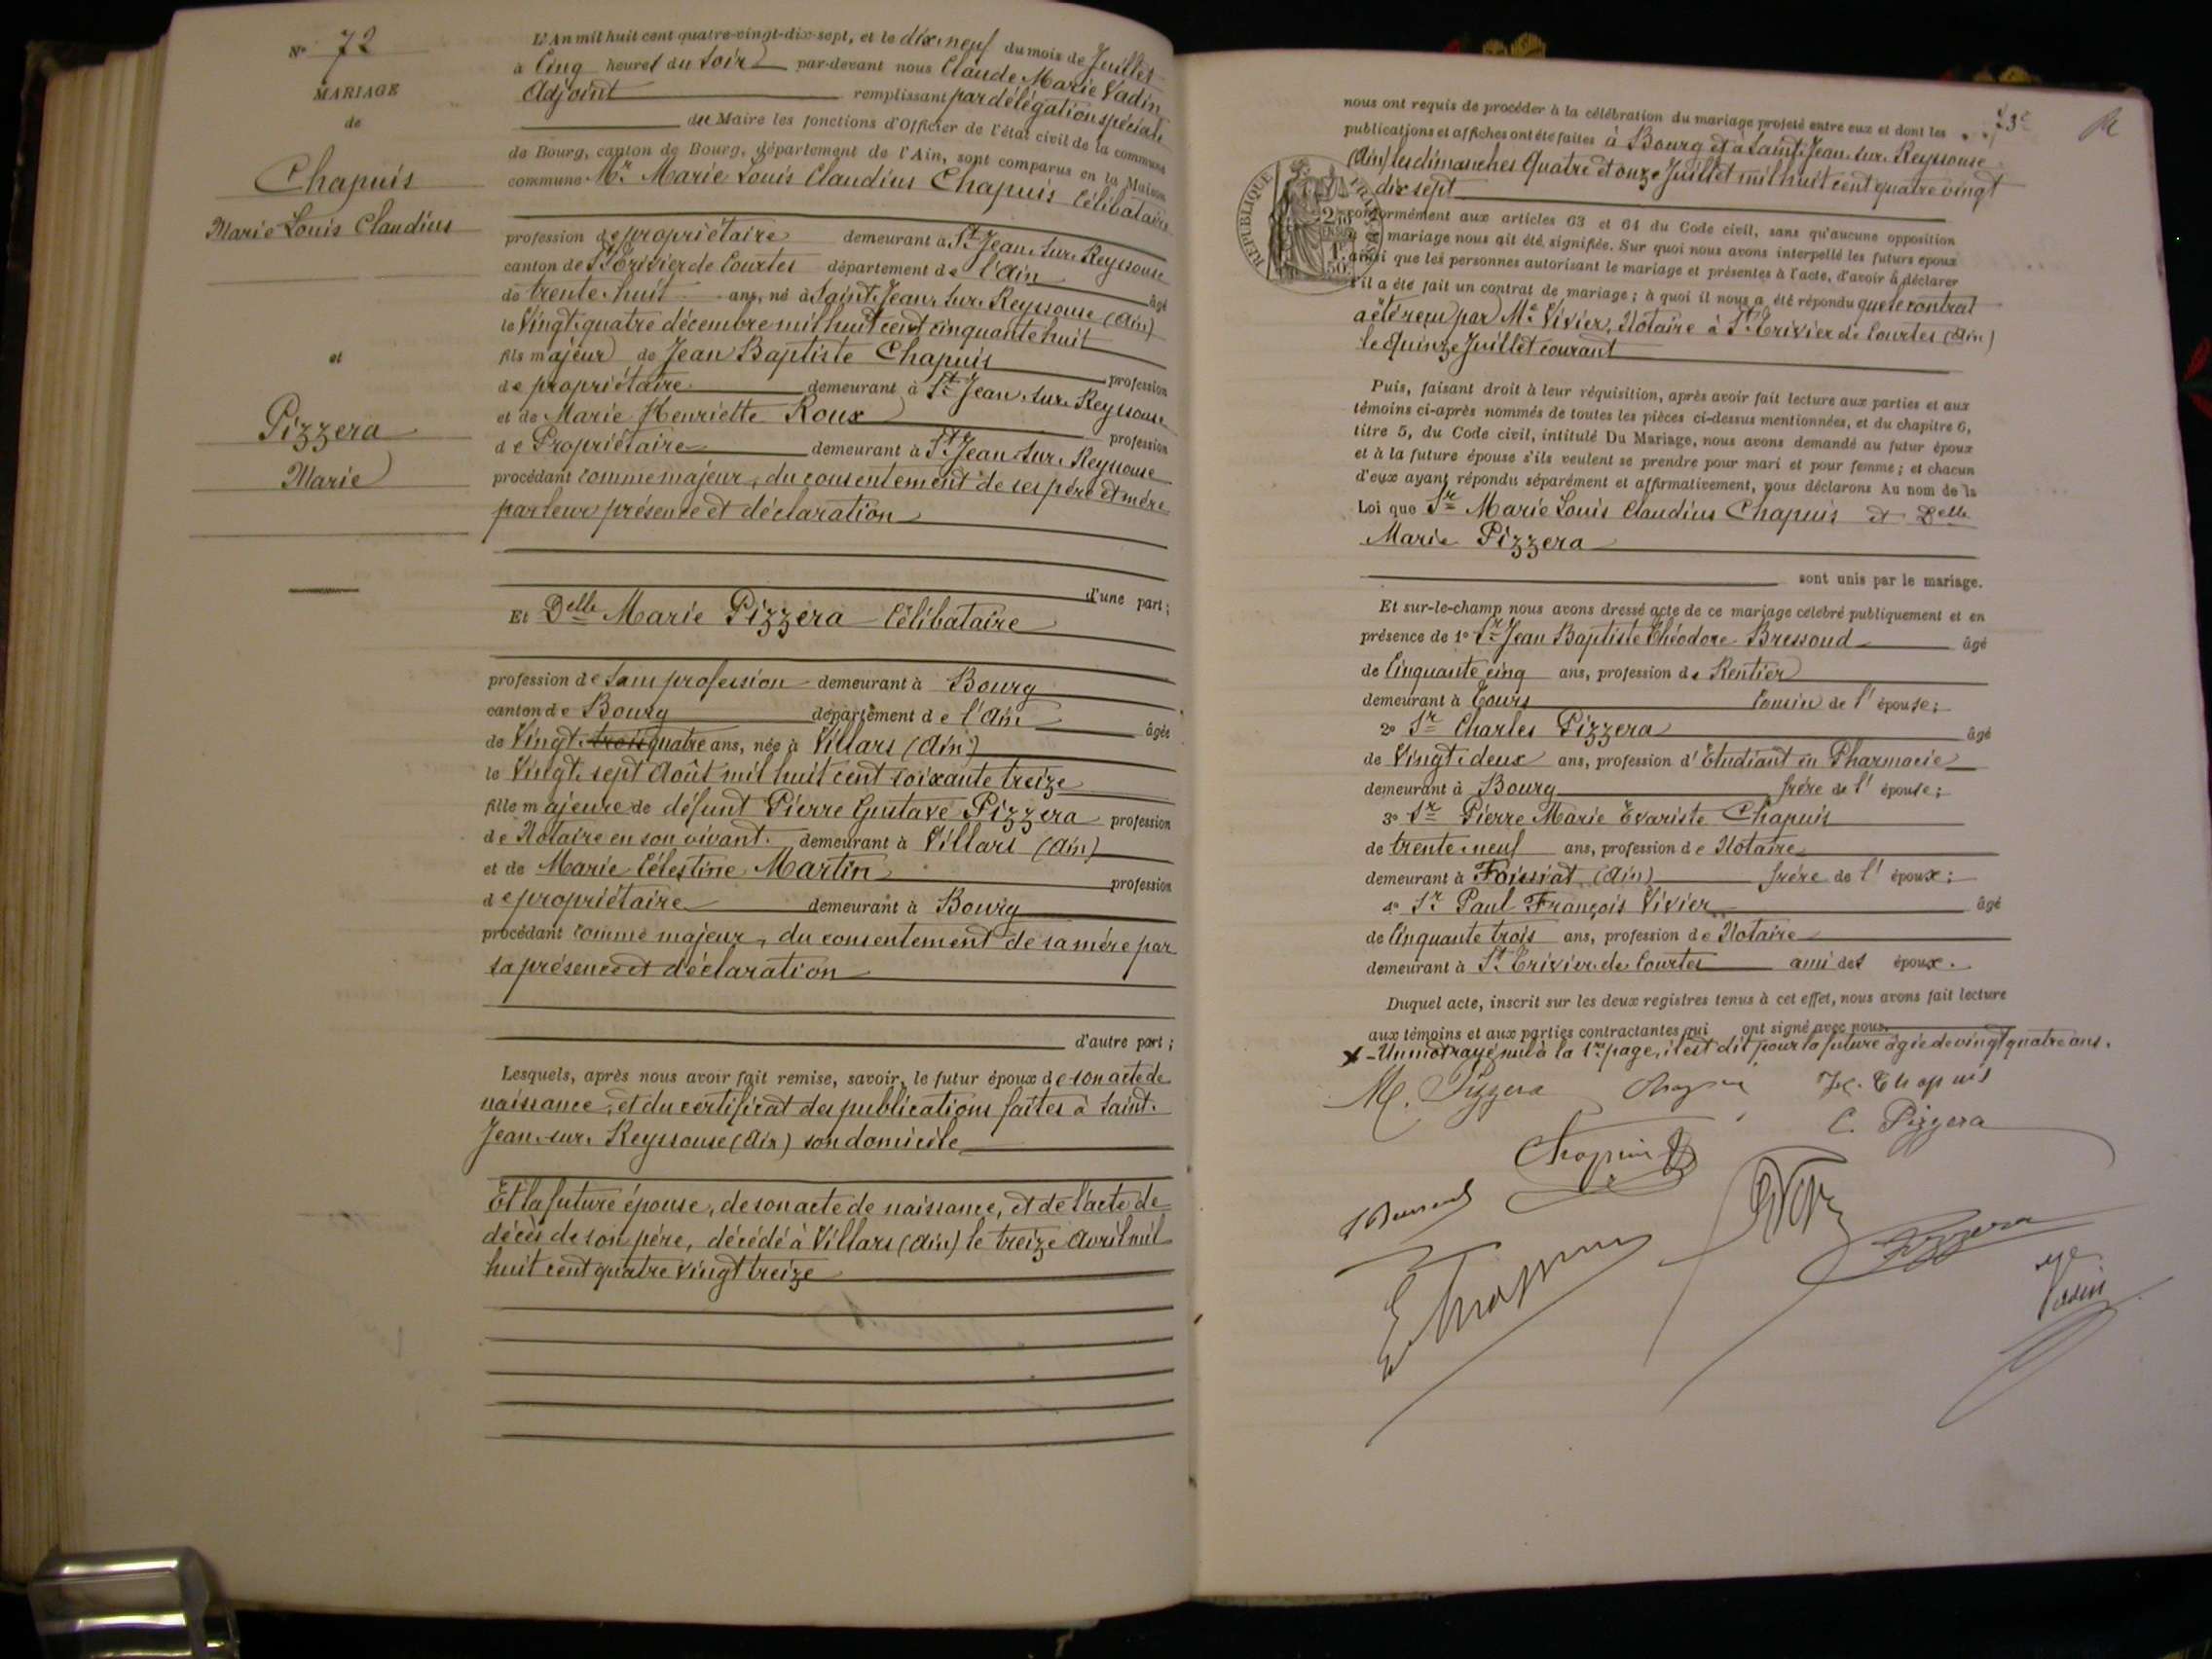 N° 72
MARIAGE
de
Chapuis
Marie Louis Claudius
et
Pizzera
Marie
L'An mil huit cent quatre-vingt-dix-sept, et le dix-neuf du mois de Juillet
à Cinq heures du Soir par-devant nous Claude Marie Vadin
Adjoint remplissant par délégation spéciale
du Maire les fonctions d'Officier de l'état civil de la commune
de Bourg, canton de Bourg, département de l'Ain, sont comparus en la Maison
commune Mr Marie Louis Claudius Chapuis Célibataire
profession de propriétaire demeurant à St Jean-sur-Reyssouse
canton de St Trivier de Courtes département de l'Ain âgé
de trente-huit ans, né à Saint-Jean-sur-Reyssouse (Ain)
le Vingt-quatre décembre mil huit cent cinquante huit
fils majeur de Jean Baptiste Chapuis profession
de propriétaire demeurant à St Jean-sur-Reyssouse
et de Marie Henriette Roux profession
de Propriétaire demeurant à St Jean-sur-Reyssouse
procédant comme majeur, du consentement de ses père et mère
par leur présence et déclaration
d'une part ;
Et Delle Marie Pizzera Célibataire
profession de Sans profession demeurant à Bourg
canton de Bourg département de l'Ain âgée
de Vingt-trois quatre ans, née à Villars (Ain)
le Vingt-sept Août mil huit cent soixante treize
fille majeure de défunt Pierre Gustave Pizzera profession
de Notaire en son vivant demeurant à Villars (Ain)
et de Marie Célestine Martin profession
de propriétaire demeurant à Bourg
procédant comme majeur, du consentement de sa mère par
sa présence et déclaration
d'autre part ;
Lesquels, après nous avoir fait remise, savoir, le futur époux de son acte de
naissance, et du certificat des publications faites à Saint-
Jean-sur-Reyssouse (Ain) son domicile
Et la future épouse, de son acte de naissance, et de l'acte de
décès de son père, décédé à Villars (Ain) le treize Avril mil
huit cent quatre vingt treize
73e
nous ont requis de procéder à la célébration du mariage projeté entre eux et dont les
publications et affiches ont été faites à Bourg et à Saint-Jean-sur-Reyssouse
(Ain) les dimanches Quatre et onze Juillet mil huit cent quatre vingt
dix sept
RÉPUBLIQUE FRANÇAISE
conformément aux articles 63 et 64 du Code civil, sans qu'aucune opposition
mariage nous ait été signifiée. Sur quoi nous avons interpellé les futurs époux
ainsi que les personnes autorisant le mariage et présentes à l'acte, d'avoir à déclarer
s'il a été fait un contrat de mariage ; à quoi il nous a été répondu que le contrat
a été reçu par Me Vivier, Notaire à St Trivier de Courtes (Ain)
le Quinze Juillet courant
Puis, faisant droit à leur réquisition, après avoir fait lecture aux parties et aux
témoins ci-après nommés de toutes les pièces ci-dessus mentionnées, et du chapitre 6,
titre 5, du Code civil, intitulé Du Mariage, nous avons demandé au futur époux
et à la future épouse s'ils veulent se prendre pour mari et pour femme ; et chacun
d'eux ayant répondu séparément et affirmativement, nous déclarons Au nom de la
Loi que Sr Marie Louis Claudius Chapuis et Delle
Marie Pizzera
sont unis par le mariage.
Et sur-le-champ nous avons dressé acte de ce mariage célébré publiquement et en
présence de 1° Sr Jean Baptiste Théodore Bressoud âgé
de Cinquante cinq ans, profession de Rentier
demeurant à Tours Cousin de l'épouse ;
2° Sr Charles Pizzera âgé
de Vingt-deux ans, profession d'Étudiant en Pharmacie
demeurant à Bourg frère de l'épouse ;
3° Sr Pierre Marie Évariste Chapuis
de trente-neuf ans, profession de Notaire
demeurant à Foissiat (Ain) frère de l'époux ;
4° Sr Paul François Vivier âgé
de Cinquante trois ans, profession de Notaire
demeurant à St Trivier-de-Courtes ami des époux.
Duquel acte, inscrit sur les deux registres tenus à cet effet, nous avons fait lecture
aux témoins et aux parties contractantes qui ont signé avec nous.
x - Un mot rayé nul à la 1re page, il est dit pour la future âgée de vingt quatre ans.
M. Pizzera Chapuis Je. Chapuis
C. Pizzera
Chapuis
E. Chapuis
Pizzera
Vadin